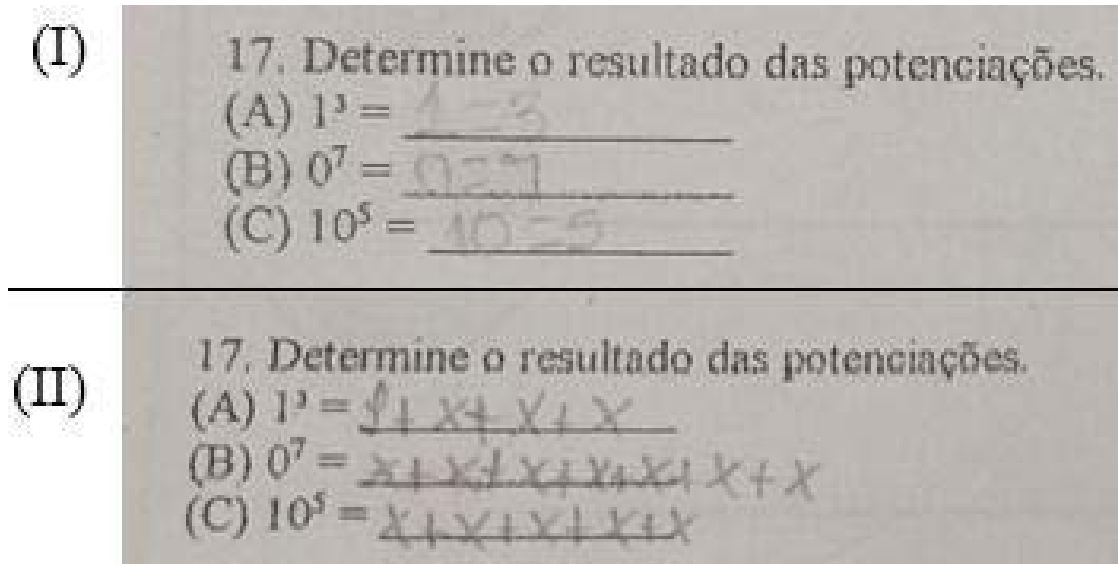 (I)
17. Determine o resultado das potenciações.
(A) 1³ = 1 = 3
(B) 0⁷ = 0 = 7
(C) 10⁵ = 10 = 5
(II)
17. Determine o resultado das potenciações.
(A) 1³ = 1 + x + x + x
(B) 0⁷ = x + x + x + x + x + x + x
(C) 10⁵ = x + x + x + x + x